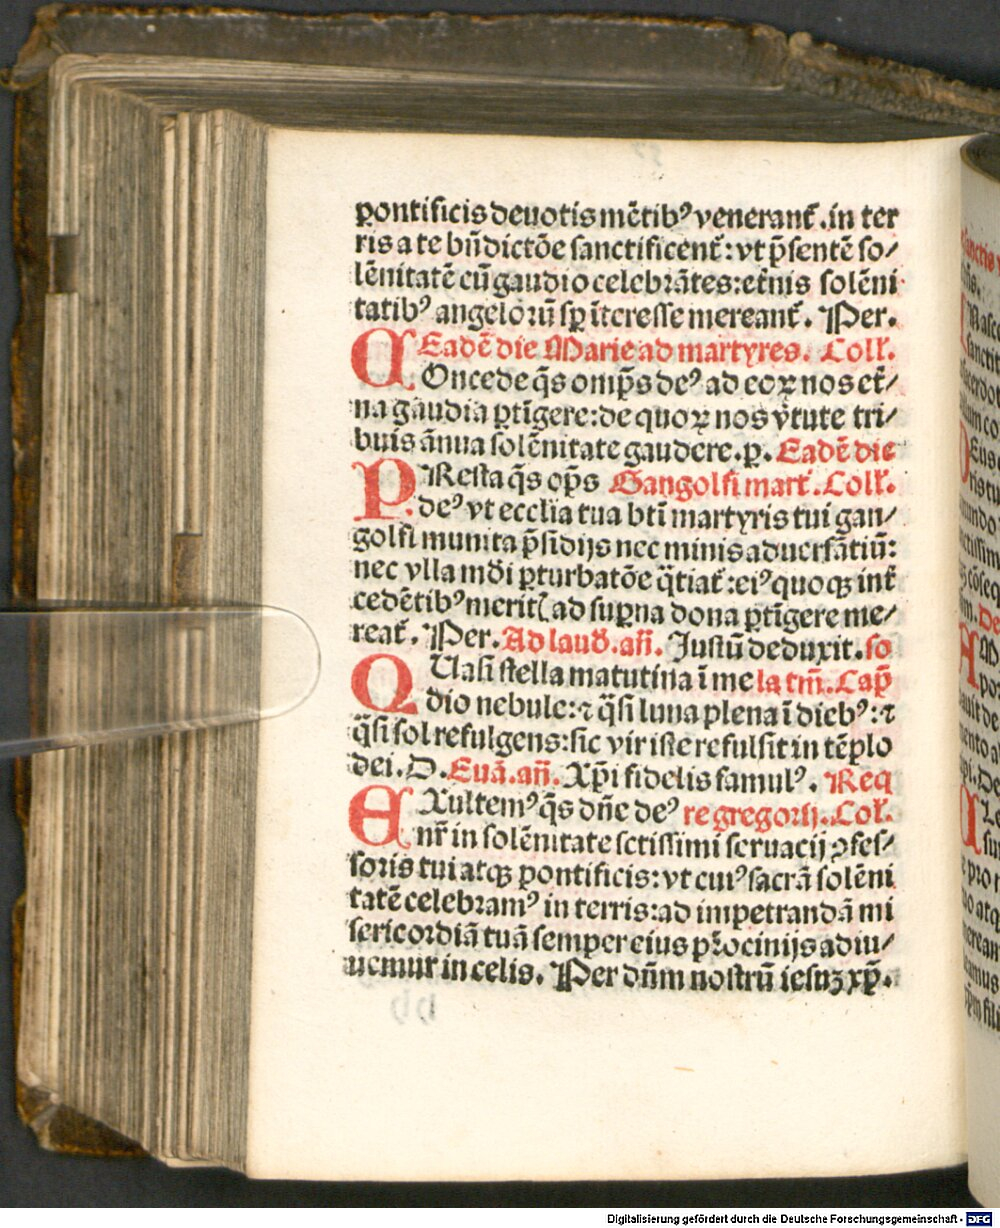 pontificis deuotis mētibꝰ venerant̄. in ter
ris a te bn̄dictōe sanctificent̄: vt p̄sentē so/
lēnitatē cū gaudio celebrātes: et̄nis solēni
tatibꝰ angelorū sp̄ īteresse mereant̄. Per.
Eadē die Marie ad martyres. Coll'.
COncede q̄s omp̄s deꝰ ad eoꝝ nos et̄/
na gaudia ꝑtīgere: de quoꝝ nos v̄tute tri/
buis ānua solēnitate gaudere. ꝑ. Eadē die
PResta q̄s op̄s Gangolfi mart̄. Coll'.
deꝰ vt ecclīa tua bt̄i martyris tui gan/
golfi munita p̄sidijs nec minis aduersātiū:
nec vlla mūdi ꝑturbatōe q̄tiat̄: eiꝰ quoqꝫ int̄
cedētibꝰ meritꝭ ad suꝑna dona ꝑtīgere me/
reat̄. Per. Ad laud'. an̄. Justū deduxit. so
QUasi stella matutina ī me la tm̄. Cap̄
dio nebule: ⁊ q̄si luna plena ī diebꝰ: ⁊
q̄si sol refulgens: sic vir iste refulsit in tēplo
dei. D. Euā. an̄. Xp̄i fidelis famulꝰ. Req
EXultemꝰ q̄s dn̄e deꝰ re gregorij. Col'.
nr̄ in solēnitate sctissimi seruacij ꝯfes/
soris tui atqꝫ pontificis: vt cuiꝰ sacrā solēni
tatē celebramꝰ in terris: ad impetrandā mi
sericordiā tuā semper eius pr̄ocinijs adiu/
uemur in celis. Per dn̄m nostrū iesuꝫ xp̄.
Digitalisierung gefördert durch die Deutsche Forschungsgemeinschaft - DFG